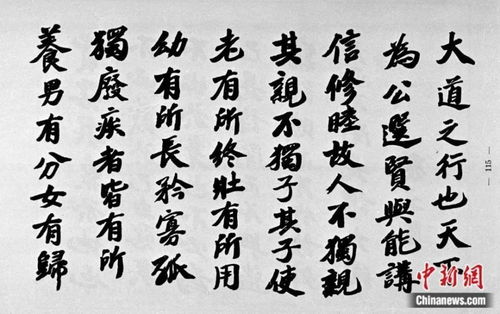 大道之行也天下
為公選賢與能講
信修睦故人不獨親
其親不獨子其子使
老有所終壯有所用
幼有所長矜寡孤
獨廢疾者皆有所
養男有分女有歸
— 115 —
中新網
Chinanews.com